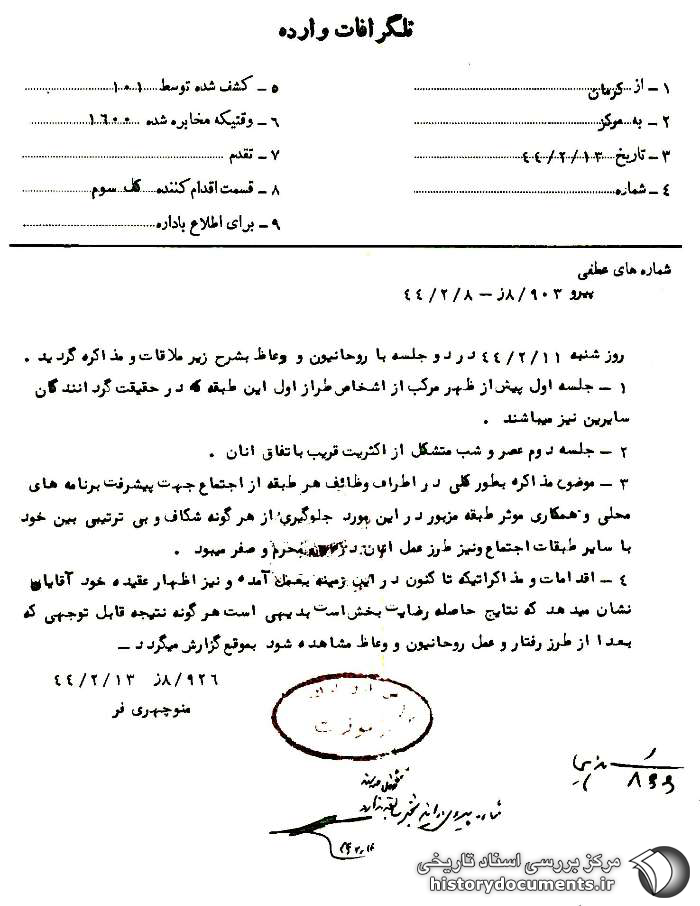 تلگرافات وارده
۱ ـ از کرمان
۲ ـ به مرکز
۳ ـ تاریخ ۴۴/۲/۱۳
۴ ـ شماره
۵ ـ کشف شده توسط ۱۰۱
۶ ـ وقتیکه مخابره شده ۱۶۰۰
۷ ـ تقدم
۸ ـ قسمت اقدام کننده کل سوم
۹ ـ برای اطلاع باداره
شماره های عطفی
پیرو ۸/۹۰۳ز ـ ۴۴/۲/۸
روز شنبه ۴۴/۲/۱۱ در دو جلسه با روحانیون و وعاظ بشرح زیر ملاقات و مذاکره گردید .
۱ ـ جلسه اول پیش از ظهر مرکب از اشخاص طراز اول این طبقه که در حقیقت گردانندگان
سایرین نیز میباشند .
۲ ـ جلسه دوم عصر و شب متشکل از اکثریت قریب باتفاق انان .
۳ ـ موضوع مذاکره بطور کلی در اطراف وظائف هر طبقه از اجتماع جهت پیشرفت برنامه های
محلی و همکاری موثر طبقه مزبور در این مورد جلوگیری از هر گونه شکاف و بی ترتیبی بین خود
با سایر طبقات اجتماع ونیز طرز عمل انان در محرم و صفر میبود .
۴ ـ اقدامات و مذاکراتیکه تا کنون در این زمینه بعمل آمده و نیز اظهار عقیده خود آقایان
نشان میدهد که نتایج حاصله رضایت بخش است بدیهی است هر گونه نتیجه قابل توجهی که
بعدا از طرز رفتار و عمل روحانیون و وعاظ مشاهده شود بموقع گزارش میگردد ـ
۸/۹۲۶ز ۴۴/۲/۱۳
منوچهری فر
مرکز بررسی اسناد تاریخی
historydocuments.ir